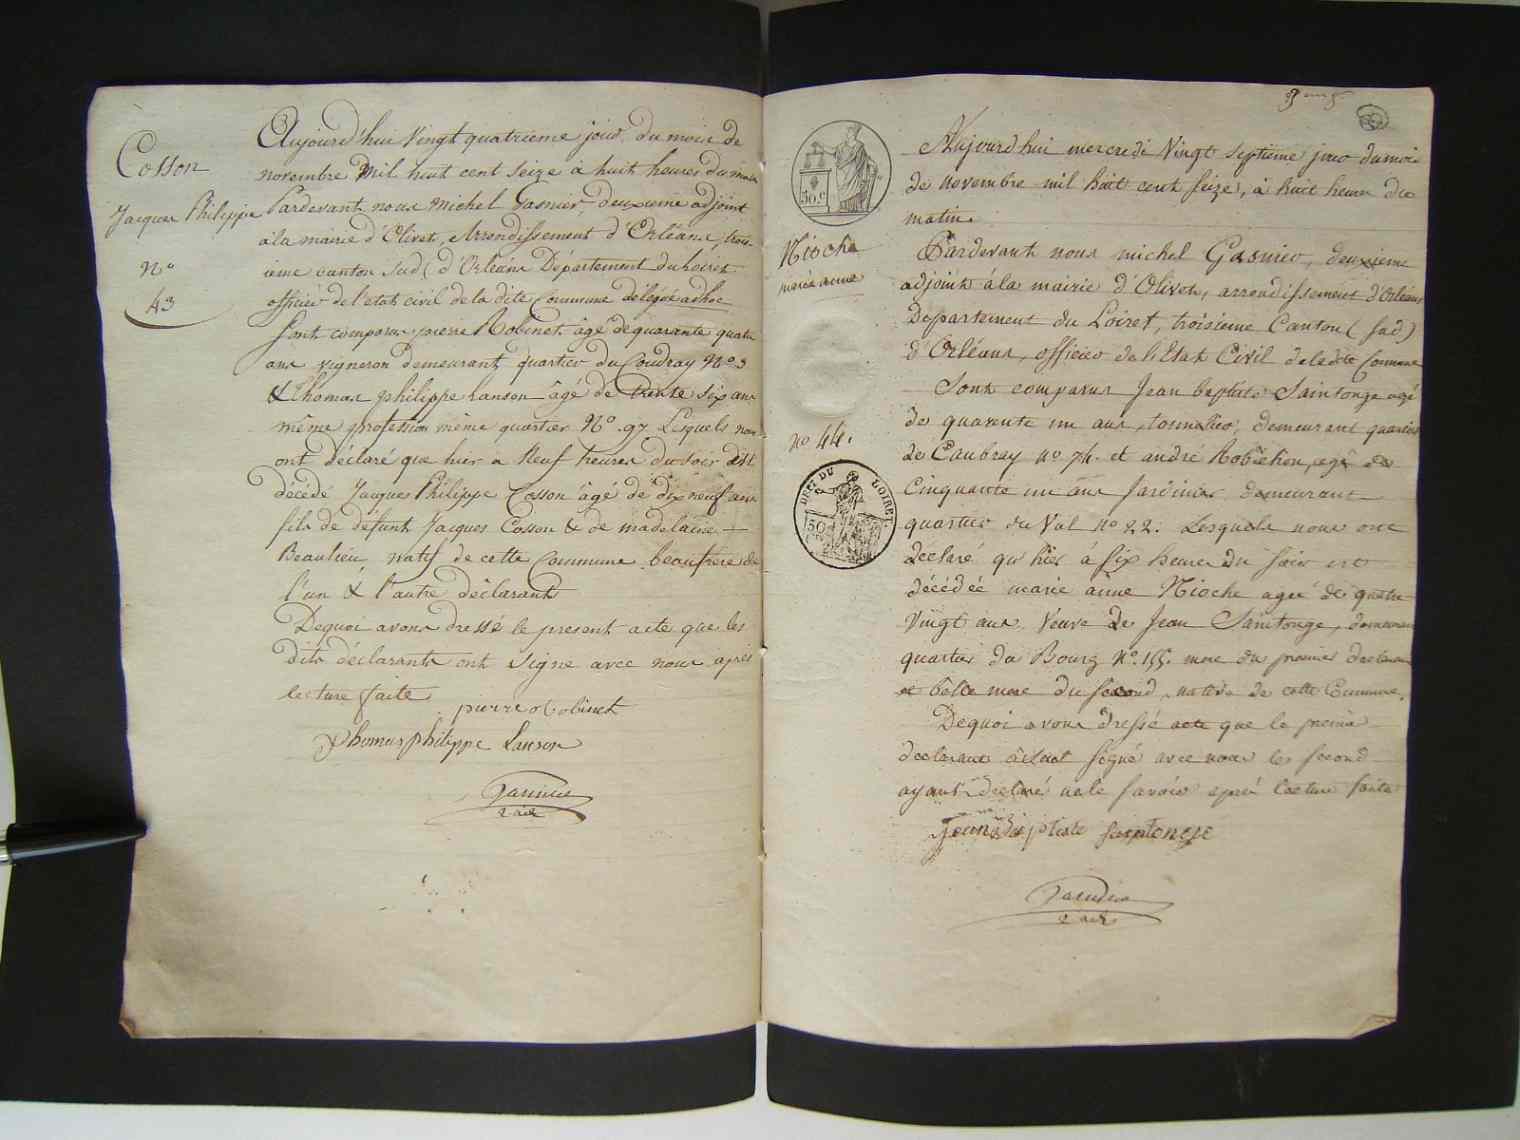 Cosson
Jacques Philippe
No
43
Aujourd'hui Vingt quatrieme jour du mois de
novembre Mil huit cent seize à huit heures du matin
Pardevant nous Michel Gasnier, deuxieme adjoint
à la mairie d'Olivet, Arrondissement d'Orléans, trois-
ieme canton Sud (d'Orléans Département du Loiret
officier de l'etat civil de la dite Commune délégué adhoc
Sont comparus pierre Robinet âgé de quarante quatre
ans vigneron demeurant quartier du Coudray No 3
& Thomas philippe Lanson âgé de trente six ans
même profession même quartier No 97 Lesquels nous
ont déclaré que hier à Neuf heures du soir est
décédé Jacques Philippe Cosson âgé de dix neuf ans
fils de défunt Jacques Cosson & de madelaine
Beaulieu, natif de cette Commune beaufrere de
l'un & l'autre déclarant
Dequoi avons dressé le present acte que les
dits déclarants ont signé avec nous après
lecture faite
pierre Robinet
Thomas philippe Lanson
Gasnier
2 adj
Nioche
marie anne
no 44.
30 c
DEPT DU LOIRET.
50
Aujourd'hui mercredi Vingt Septieme jour du moi
de novembre mil huit cent seize, à huit heure du
matin.
Pardevant nous michel Gasnier, deuxieme
adjoint à la mairie d'Olivet, arrondissement d'Orléans
Département du Loiret, troisieme Canton (Sud)
d'Orléans, officier de l'Etat Civil de la dite Commune
Sont comparus Jean baptiste Saintonge agé
de quarante un ans, tonnelier, demeurant quartier
de Caubray no 74. et andré Robichon, agé de
Cinquante un ans Jardinier demeurant
quartier du Val no 22. Lesquels nous ont
déclaré qu'hier à Six heures du Soir est
décédée marie anne Nioche ageé de quatre
Vingt ans, Veuve de Jean Saintonge, demeurant
quartier du Bourg No. 155. mere du premier declarant
et belle mere du second, native de cette Commune.
Dequoi avons dressé acte que le premier
declarant a signé avec nous le second
ayant declaré ne le savoir après lecture faite
Jean baptiste saintonge
Gasnier
2 adj